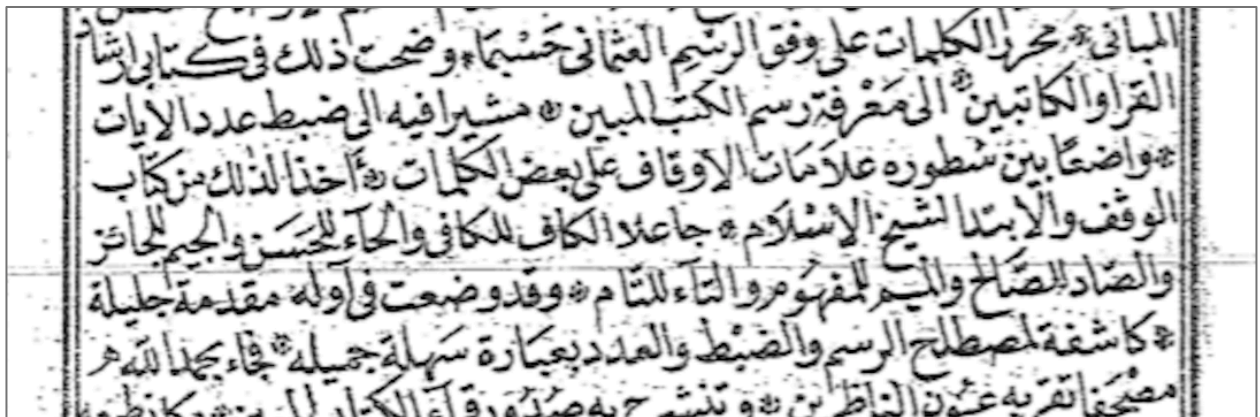 المبانى * محرر الكلمات على وفق الرسْمِ العثمانى حَسْبَمَا * وضحت ذلك فى كتابى ارشاد
القرا والكاتبين * الى مَعْرفة رسم الكتب المبين * مشيرا فيه الى ضبط عدد الايات
* واضعًا بين سُطوره علامَات الاوقاف على بعض الكلمات * آخذا لذلك من كتاب
الوقف والابتدا لشيخ الاسْلام * جاعلا الكاف للكافى والحآء للحَسَن والجيم للجائز
والصّاد للصَّالح والميم للمفهُوم والتآء للتام * وقد وضعت فى آوله مقدمة جليلة
* كاشفة لمصطلح الرسم والضبْط والعدد بعبَارة سَهلة جميله * فجاء بحمد الله
مصْحَفا تقر به عيون الناظرين * وتنشرح به صُدُور قرآء